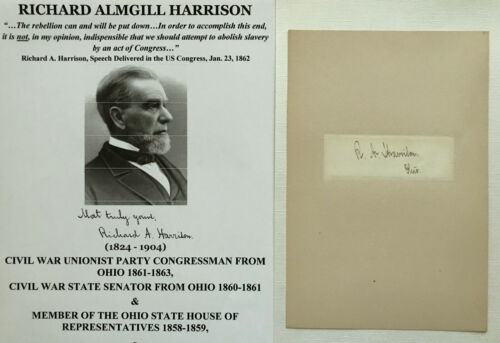 RICHARD ALMGILL HARRISON
"...The rebellion can and will be put down...In order to accomplish this end,
it is not, in my opinion, indispensible that we should attempt to abolish slavery
by an act of Congress..."
Richard A. Harrison, Speech Delivered in the US Congress, Jan. 23, 1862
Most truly yours,
Richard A. Harrison.
(1824 - 1904)
CIVIL WAR UNIONIST PARTY CONGRESSMAN FROM
OHIO 1861-1863,
CIVIL WAR STATE SENATOR FROM OHIO 1860-1861
&
MEMBER OF THE OHIO STATE HOUSE OF
REPRESENTATIVES 1858-1859,
R. A. Harrison
Ohio.